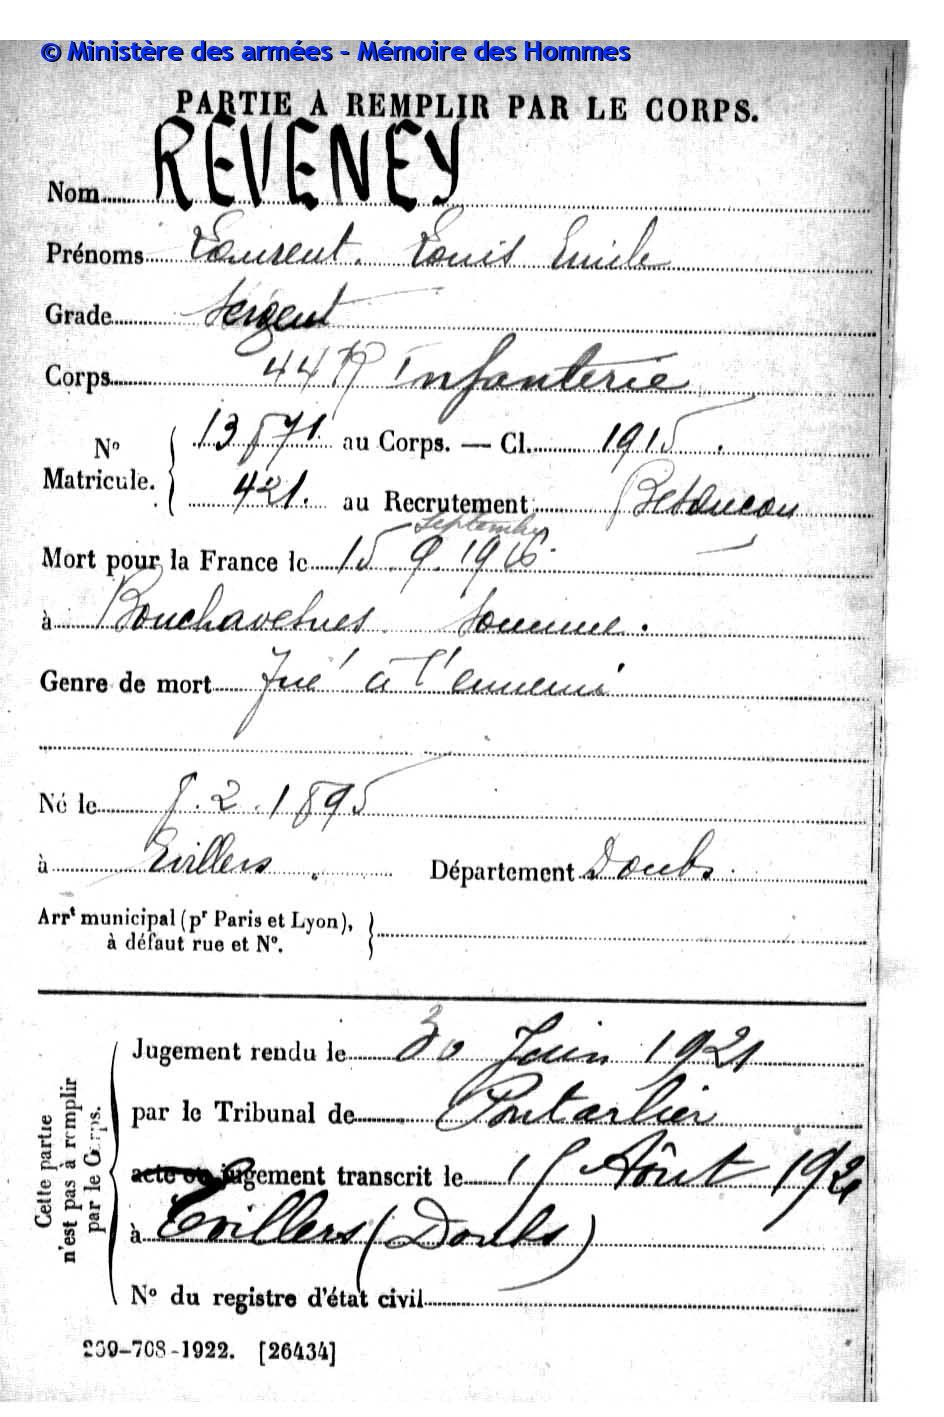 © Ministère des armées - Mémoire des Hommes
PARTIE A REMPLIR PAR LE CORPS.
Nom REVENEY
Prénoms Laurent. Louis Emile
Grade Sergent
Corps 44 R Infanterie
N° Matricule. 13871 au Corps. — Cl. 1915.
421. au Recrutement Besancon
septembre
Mort pour la France le 15.9.1916
à Bouchavesnes Somme.
Genre de mort Tué à l'ennemi
Né le 8.2.1895
à Evillers. Département Doubs.
Arrt municipal (pr Paris et Lyon),
à défaut rue et N°.
Cette partie
n'est pas à remplir
par le Corps.
Jugement rendu le 30 Juin 1921
par le Tribunal de Pontarlier
acte ou jugement transcrit le Août 192
à Evillers (Doubs)
N° du registre d'état civil
-708-1922. [26434]